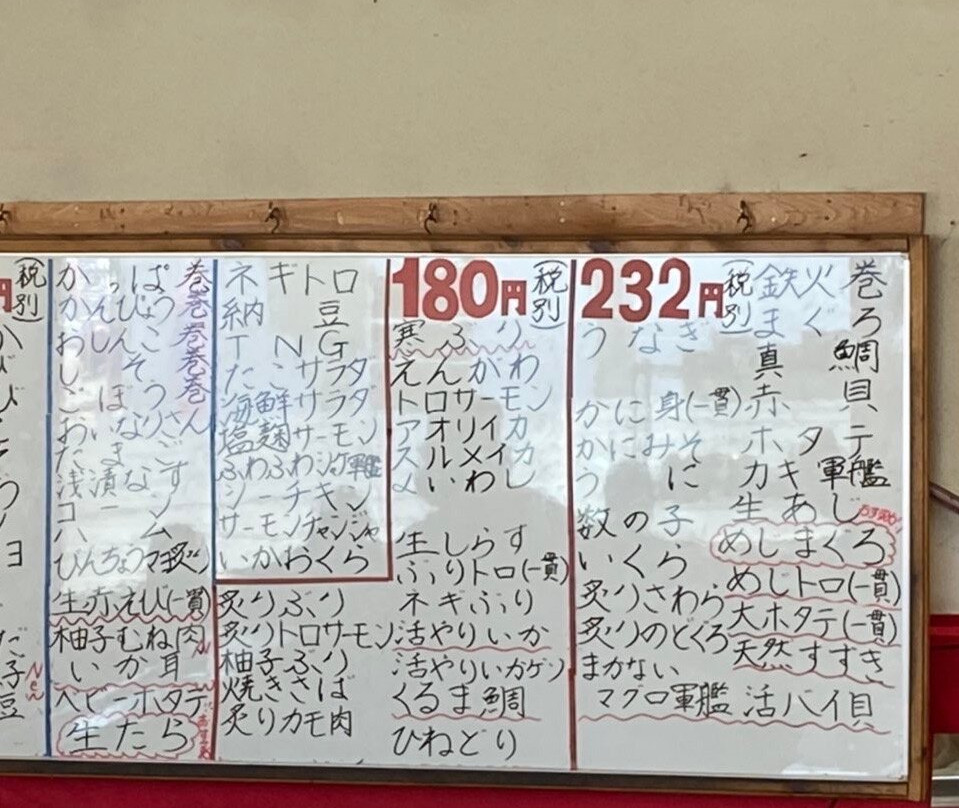 円(税別)
かっぱ巻
かんぴょう巻
おしんこ巻
しそ巻
ごぼう巻
おいなりさん
たまご
浅漬なす
コーン
ハム
びんちょうマヨ炙り
生赤えび(一貫)
柚子むね肉
いか耳
ベビーホタテ
生たら
おすすめ
New
ネギトロ
納豆
TNG
たこサラダ
海鮮サラダ
塩麹サーモン
ふわふわシャケ軍艦
シーチキン
サーモンチャンジャ
いかおくら
180円(税別)
寒ぶり
えんがわ
トロサーモン
アオリイカ
スルメイカ
〆いわし
生しらす
ぶりトロ(一貫)
ネギぶり
活やりいか
活やりいかゲソ
くるま鯛
ひねどり
炙りぶり
炙りトロサーモン
柚子ぶり
焼きさば
炙りカモ肉
232円(税別)
うなぎ
かに身(一貫)
かにみそ
うに
数の子
いくら
炙りさわら
炙りのどぐろ
まかない
マグロ軍艦
鉄火巻
まぐろ
真鯛
赤貝
ホタテ
カキ軍艦
生あじ
おすすめ
めじまぐろ
めじトロ(一貫)
大ホタテ(一貫)
天然すずき
活バイ貝